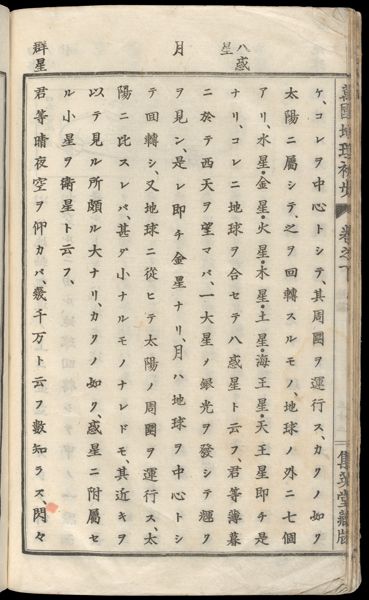 萬國地理初歩 卷之下 集英堂藏版
ケ、コレヲ中心トシテ、其周圍ヲ運行ス、カクノ如ク
太陽ニ屬シテ、之ヲ回轉スルモノ、地球ノ外ニ七個
アリ、水星・金星・火星・木星・土星・海王星・天王星即チ是
ナリ、コレニ地球ヲ合セテ八惑星ト云フ、君等薄暮
ニ於テ西天ヲ望マバ、一大星ノ銀光ヲ發シテ輝ク
ヲ見ン、是レ即チ金星ナリ、月ハ地球ヲ中心トシ
テ回轉シ、又地球ニ從ヒテ太陽ノ周圍ヲ運行ス、太
陽ニ比スレバ、甚ダ小ナルモノナレドモ、其近キヲ
以テ見ル所頗ル大ナリ、カクノ如ク、惑星ニ附屬セ
ル小星ヲ衛星ト云フ、
君等晴夜空ヲ仰カバ、幾千万ト云フ數知ラス、閃々
八惑星
月
群星